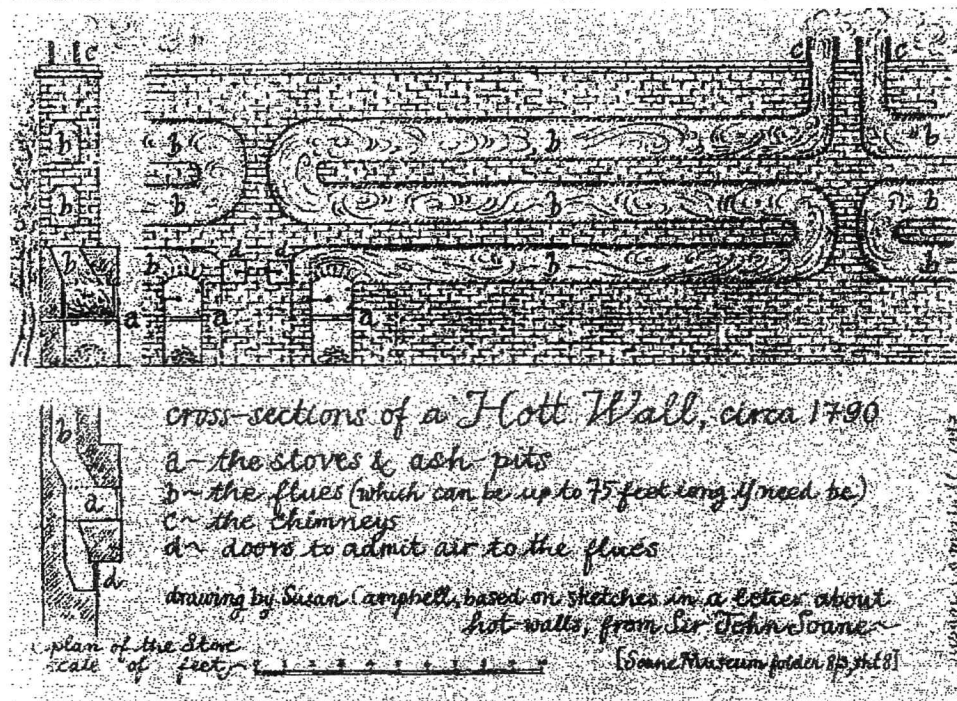 c
c
c
b
b
b
b
b
b
b
b
b
b
d
d
b
b
b
a
a
a
cross-sections of a Hott Wall, circa 1790
a~ the stoves & ash-pits
b~ the flues (which can be up to 75 feet long if need be)
c~ the chimneys
d~ doors to admit air to the flues
drawing by Susan Campbell, based on sketches in a letter about
hot-walls, from Sir John Soane~
[Soane Museum folder 8p, sht 8]
b
a
d
plan of the Stove
scale of feet